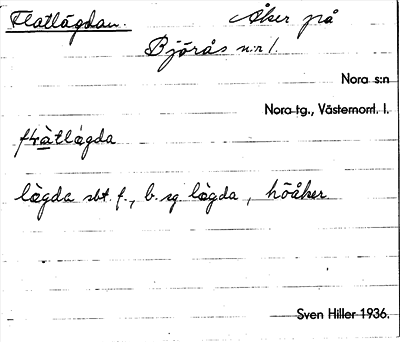 Flatlägdan. Åker på
Björås n:r 1.
Nora s:n
Nora tg., Västernorrl. l.
lägda sbt. f., b. sg. lägda, höåker
Sven Hiller 1936.